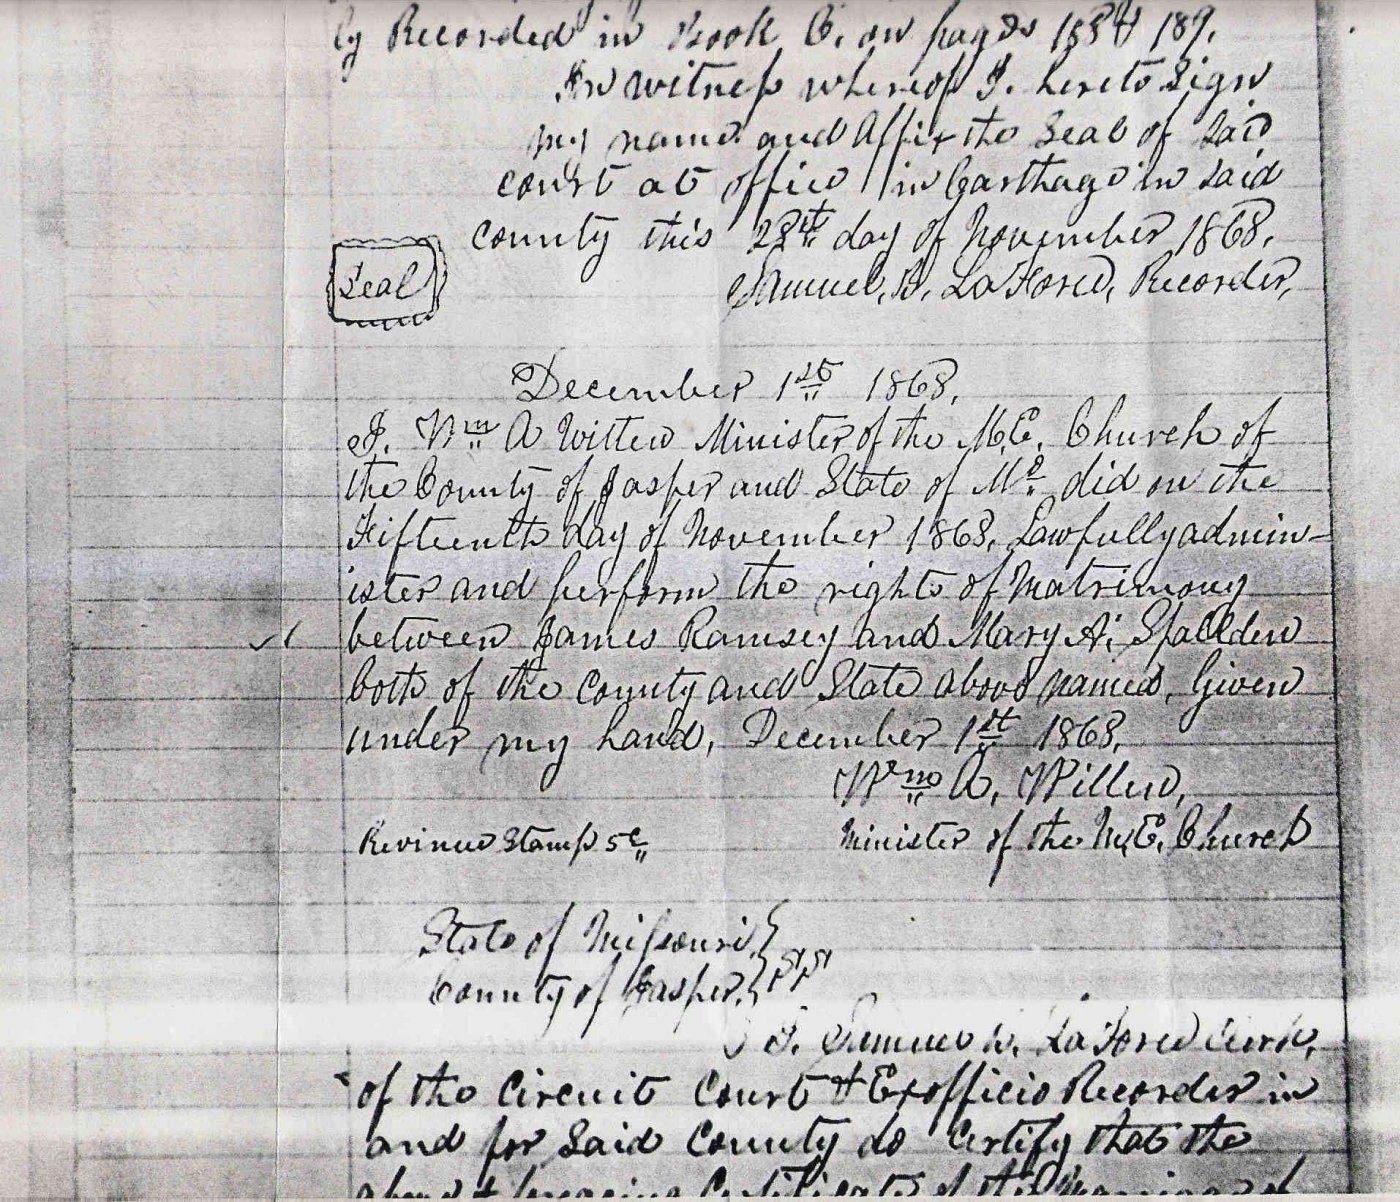 ly Recorded in Book C. on pages 188 & 189.
In witness whereof I. hereto Sign
my name and Affix the Seal of Said
court at office in Carthage in Said
county this 28th day of November 1868.
Seal
Samuel. B. LaForce, Recorder,
December 1st 1868.
I. Wm A Witten Minister of the M.E. Church of
the County of Jasper and State of Mo did on the
Fifteenth day of November 1868. Lawfully admin-
ister and perform the rights of Matrimony
between James Ramsey and Mary A. Spalden
both of the county and State above named, Given
under my hand, December 1st 1868.
Wm A. Witten,
Revinue Stamp 5c
Minister of the M.E. Church
State of Missouri,
County of Jasper, } SS
I. Samuel B. LaForce Clerk,
of the Circuit Court & Exofficio Recorder in
and for Said County do Certify that the
above & foregoing Certificate of the Marriage of